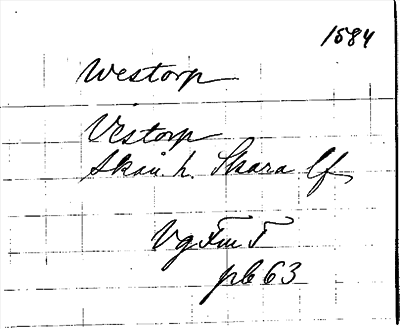 1584
Westorp
Vestorp
Skån h. Skara lfs
VgFmT
pb 63